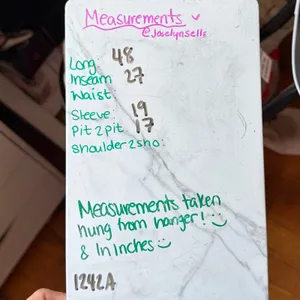 Measurements
@Jocelynselle
Long 48
Inseam 27
Waist
Sleeve: 19
Pit 2 pit 17
Shoulder2sho:
Measurements taken
hung from hanger! :)
& In Inches :)
1242A